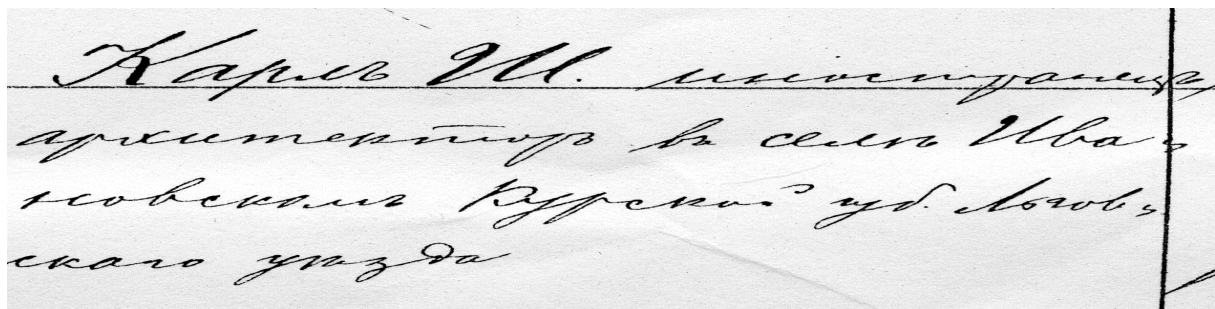 Карлъ Ш. иностранецъ,
архитекторъ въ селѣ Ива-
новскомъ Курской губ. Льгов-
скаго уѣзда